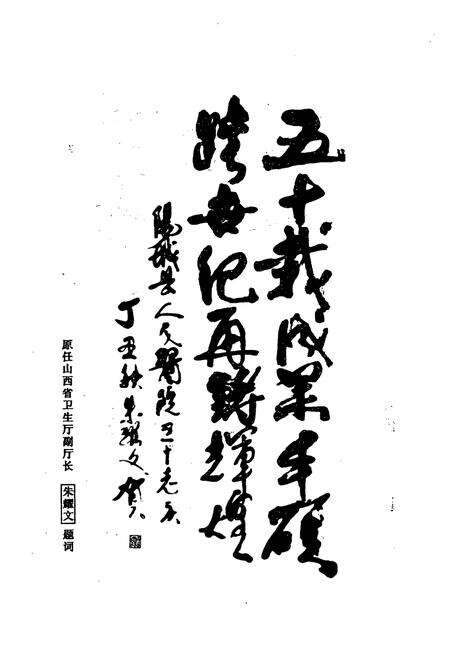 五十载成果丰硕
跨世纪再鑄輝煌
陽城县人民醫院五十庆
丁丑秋朱耀文贺
原任山西省卫生厅副厅长 朱耀文 题词